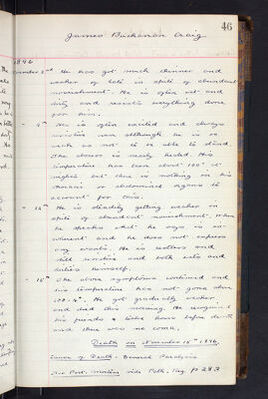 46
James Buchanan Craig
1896
November 2nd He has got much thinner and
weaker of late in spite of abundant
nourishment. He is often wet and
dirty and resists everything done
for him.
- 9th He is often excited and always
resistive now although he is so
weak as not to be able to stand.
The above is nearly healed. His
temperature has been about 100° at
nights but there is nothing in his
thoracic or abdominal organs to
account for this.
- 14th He is steadily getting weaker in
spite of abundant nourishment. When
he speaks what he says is in-
coherent and he does not express
any wants. He is restless and
still resistive and both wets and
dirties himself.
- 18th The above symptoms continued and
his temperature has not gone above
100.4°. He got gradually weaker
and died this morning. He recognised
his friends a little while before death
and there was no coma.
Death on November 18th 1896.
Cause of Death - General Paralysis
See Post Mortem vide Path. Reg. p 283